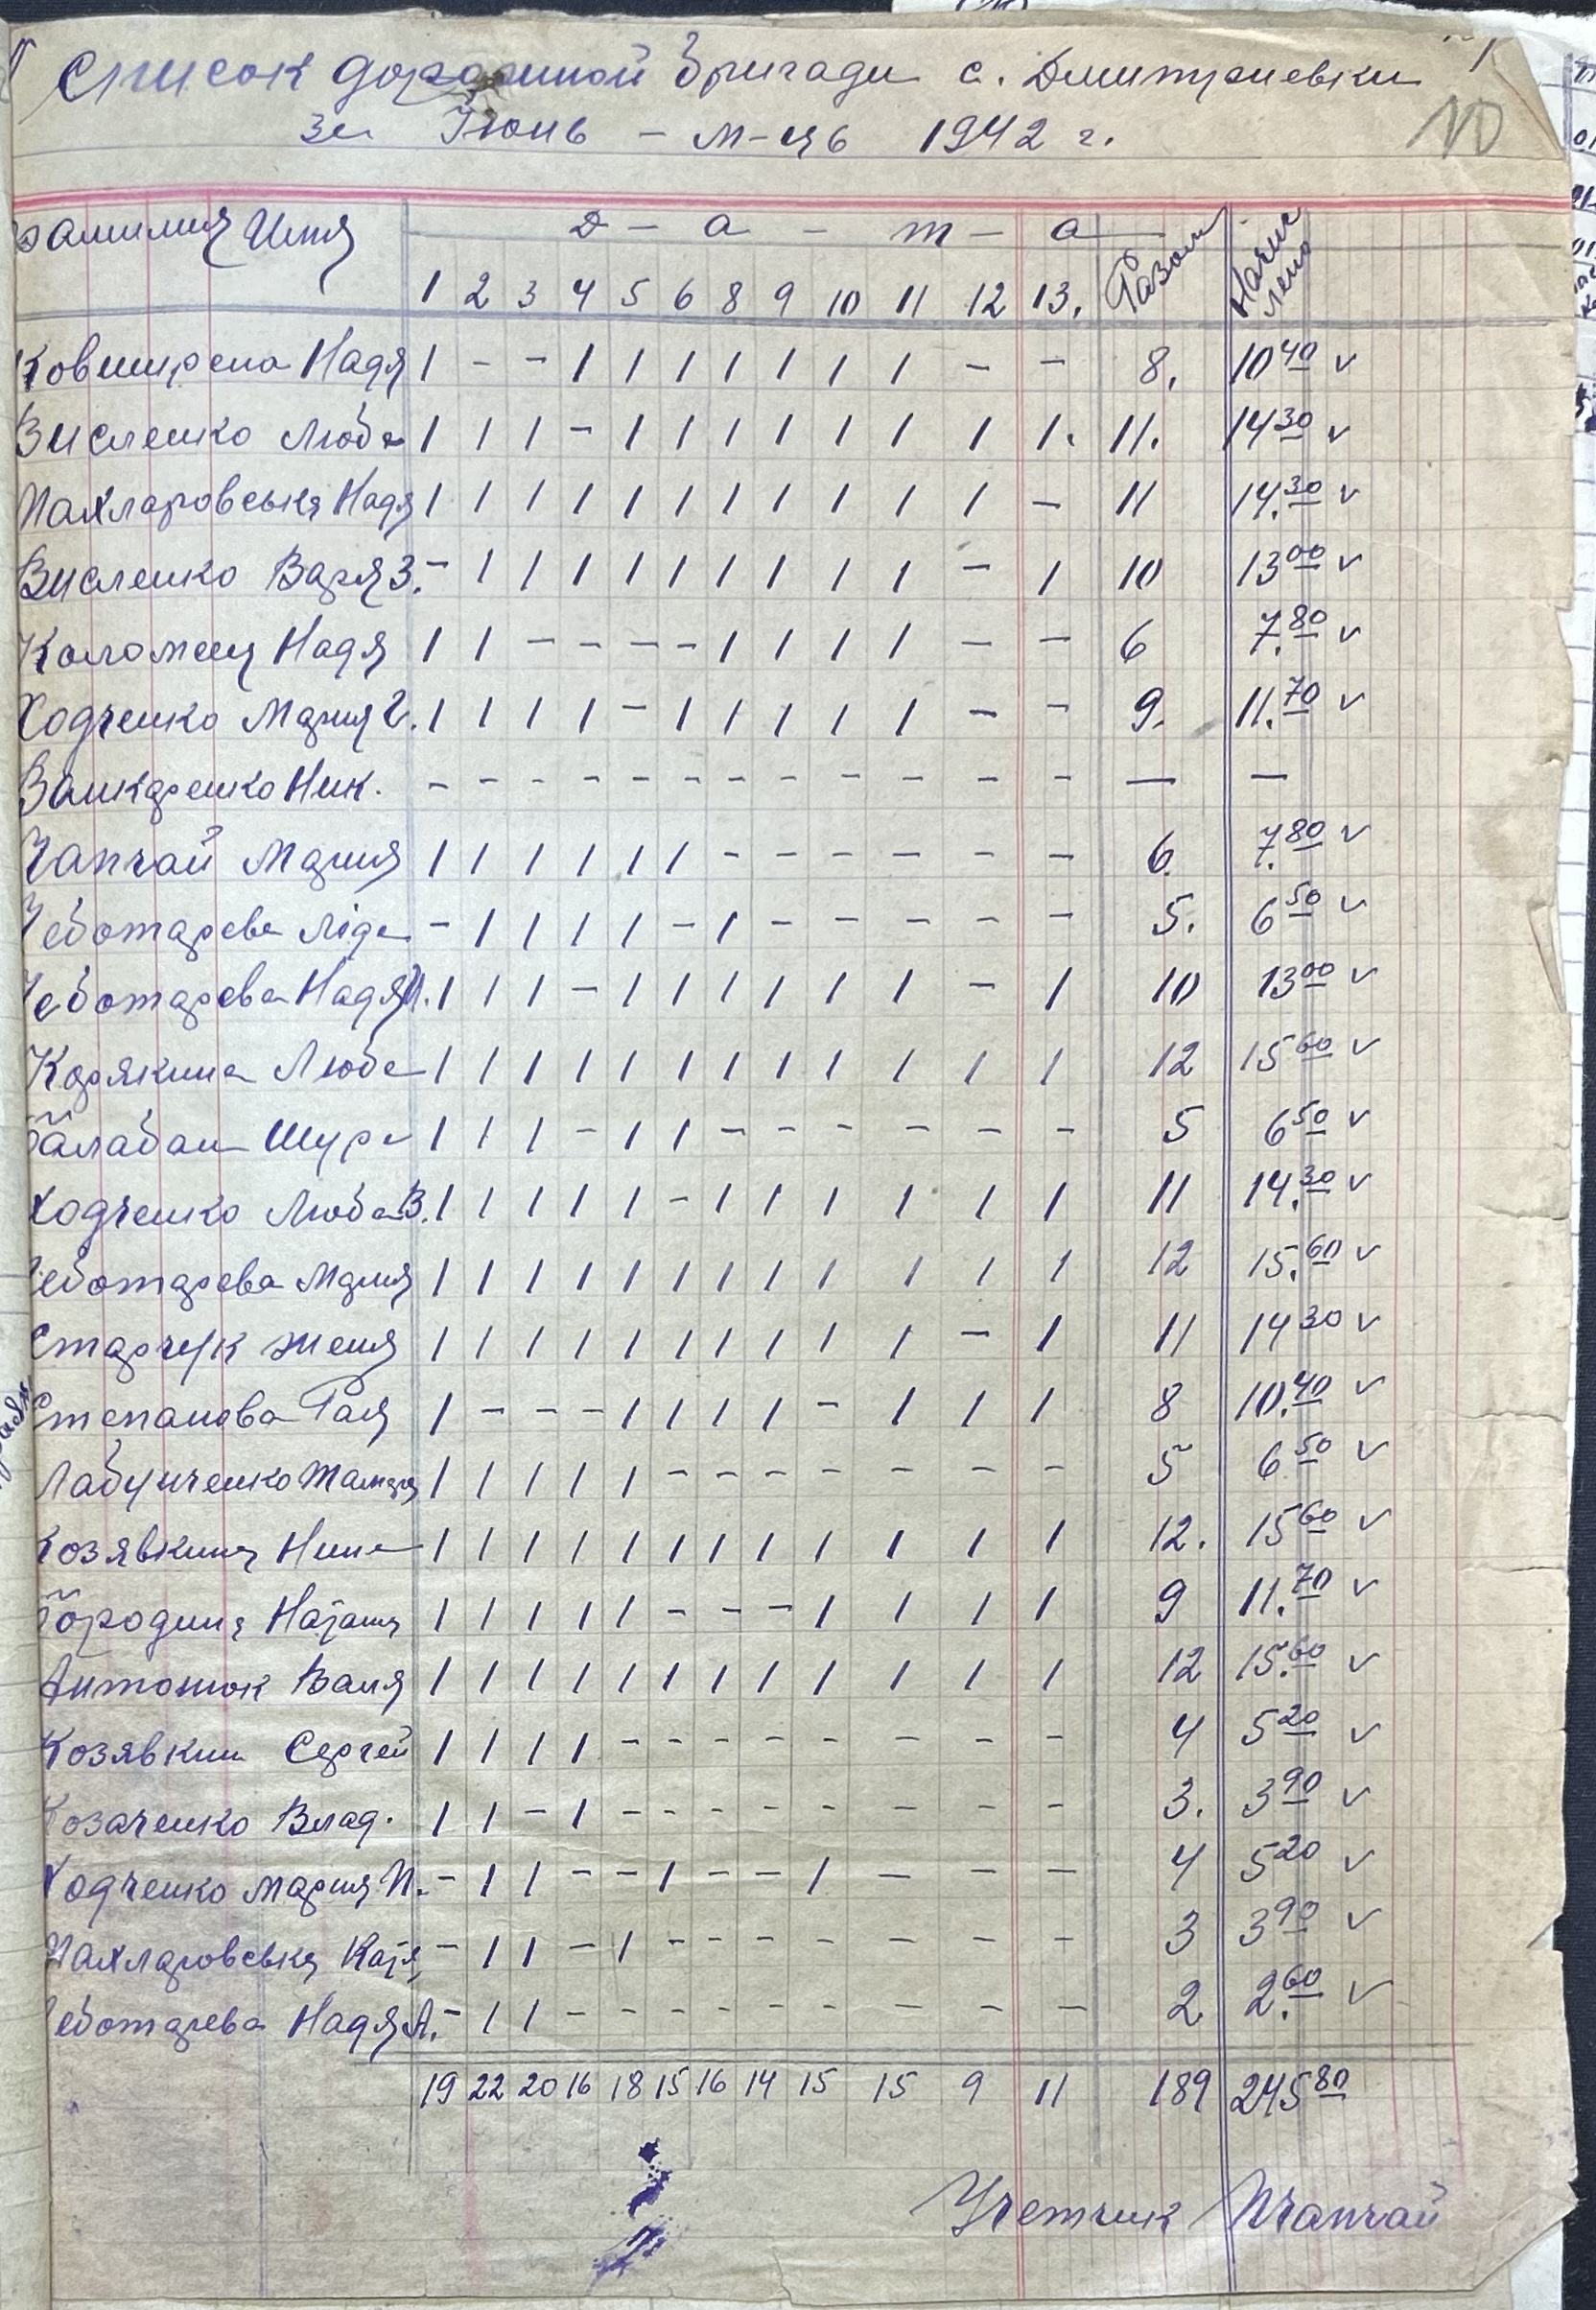 Список дорожной бригади с. Дмитриевки
за Июнь – м-ць 1942 г.
10
Фамилия Имя Д – а – т – а Разом Начислено
1 2 3 4 5 6 8 9 10 11 12 13.
Надя 1 - - 1 1 1 1 1 1 1 - - 8. 10 40 v
Висленко Люба 1 1 1 - 1 1 1 1 1 1 1 1. 11. 14 30 v
Пахларовська Надя 1 1 1 1 1 1 1 1 1 1 1 - 11 14.30 v
Висленко Варя З. - 1 1 1 1 1 1 1 1 1 - 1 10 13 00 v
Коломеец Надя 1 1 - - - - 1 1 1 1 - - 6 7.80 v
Ходченко Мария Г. 1 1 1 1 - 1 1 1 1 1 - - 9. 11.70 v
Ник. - - - - - - - - - - - - — —
Чапчай Мария 1 1 1 1 1 1 - - - - - - 6. 7.80 v
Чеботарева Ліда - 1 1 1 1 - 1 - - - - - 5. 6 50 v
Чеботарева Надя И. 1 1 1 - 1 1 1 1 1 1 - 1 10 13 00 v
Корякина Люба 1 1 1 1 1 1 1 1 1 1 1 1 12 15 60 v
Балабан Шура 1 1 1 - 1 1 - - - - - - 5 6 50 v
Ходченко Люба В. 1 1 1 1 1 - 1 1 1 1 1 1 11 14.30 v
Чеботарева Мария 1 1 1 1 1 1 1 1 1 1 1 1 12 15.60 v
Старчук Женя 1 1 1 1 1 1 1 1 1 1 - 1 11 14 30 v
Степанова Рая 1 - - - 1 1 1 1 - 1 1 1 8 10.40 v
Лабунченко Тамара 1 1 1 1 1 - - - - - - - 5 6 50 v
Козявкина Нина 1 1 1 1 1 1 1 1 1 1 1 1 12. 15 60 v
Бородина Наташа 1 1 1 1 1 - - - 1 1 1 1 9 11.70 v
Антонюк Валя 1 1 1 1 1 1 1 1 1 1 1 1 12 15.60 v
Козявкин Сергей 1 1 1 1 - - - - - - - - 4 5 20 v
Козаченко Влад. 1 1 - 1 - - - - - - - - 3. 3 90 v
Ходченко Мария И. - 1 1 - - 1 - - 1 - - - 4 5 20 v
Пахларовська Катя - 1 1 - 1 - - - - - - - 3 3 90 v
Чеботарева Надя А. - 1 1 - - - - - - - - - 2 2.60 v
19 22 20 16 18 15 16 14 15 15 9 11 189 245 80
Учетчик Чапчай